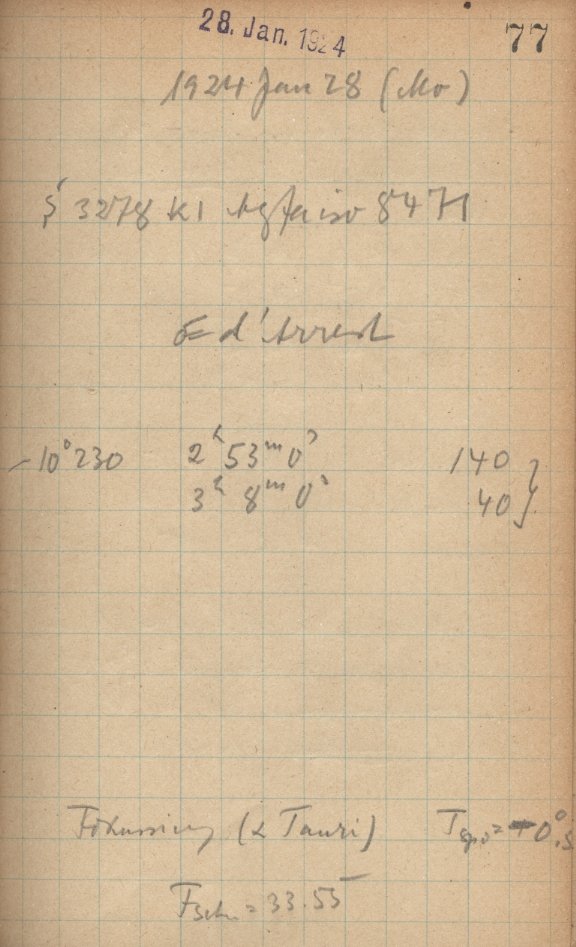 28. Jan. 1924 77
1924 Jan 28 (Mo)
S 3278 K1 Agfa iso 8471
d'Arrest
-10°230 2ʰ 53ᵐ 0ˢ 140
3ʰ 8ᵐ 0ˢ 40
Fokussierg (α Tauri)
= 33.55